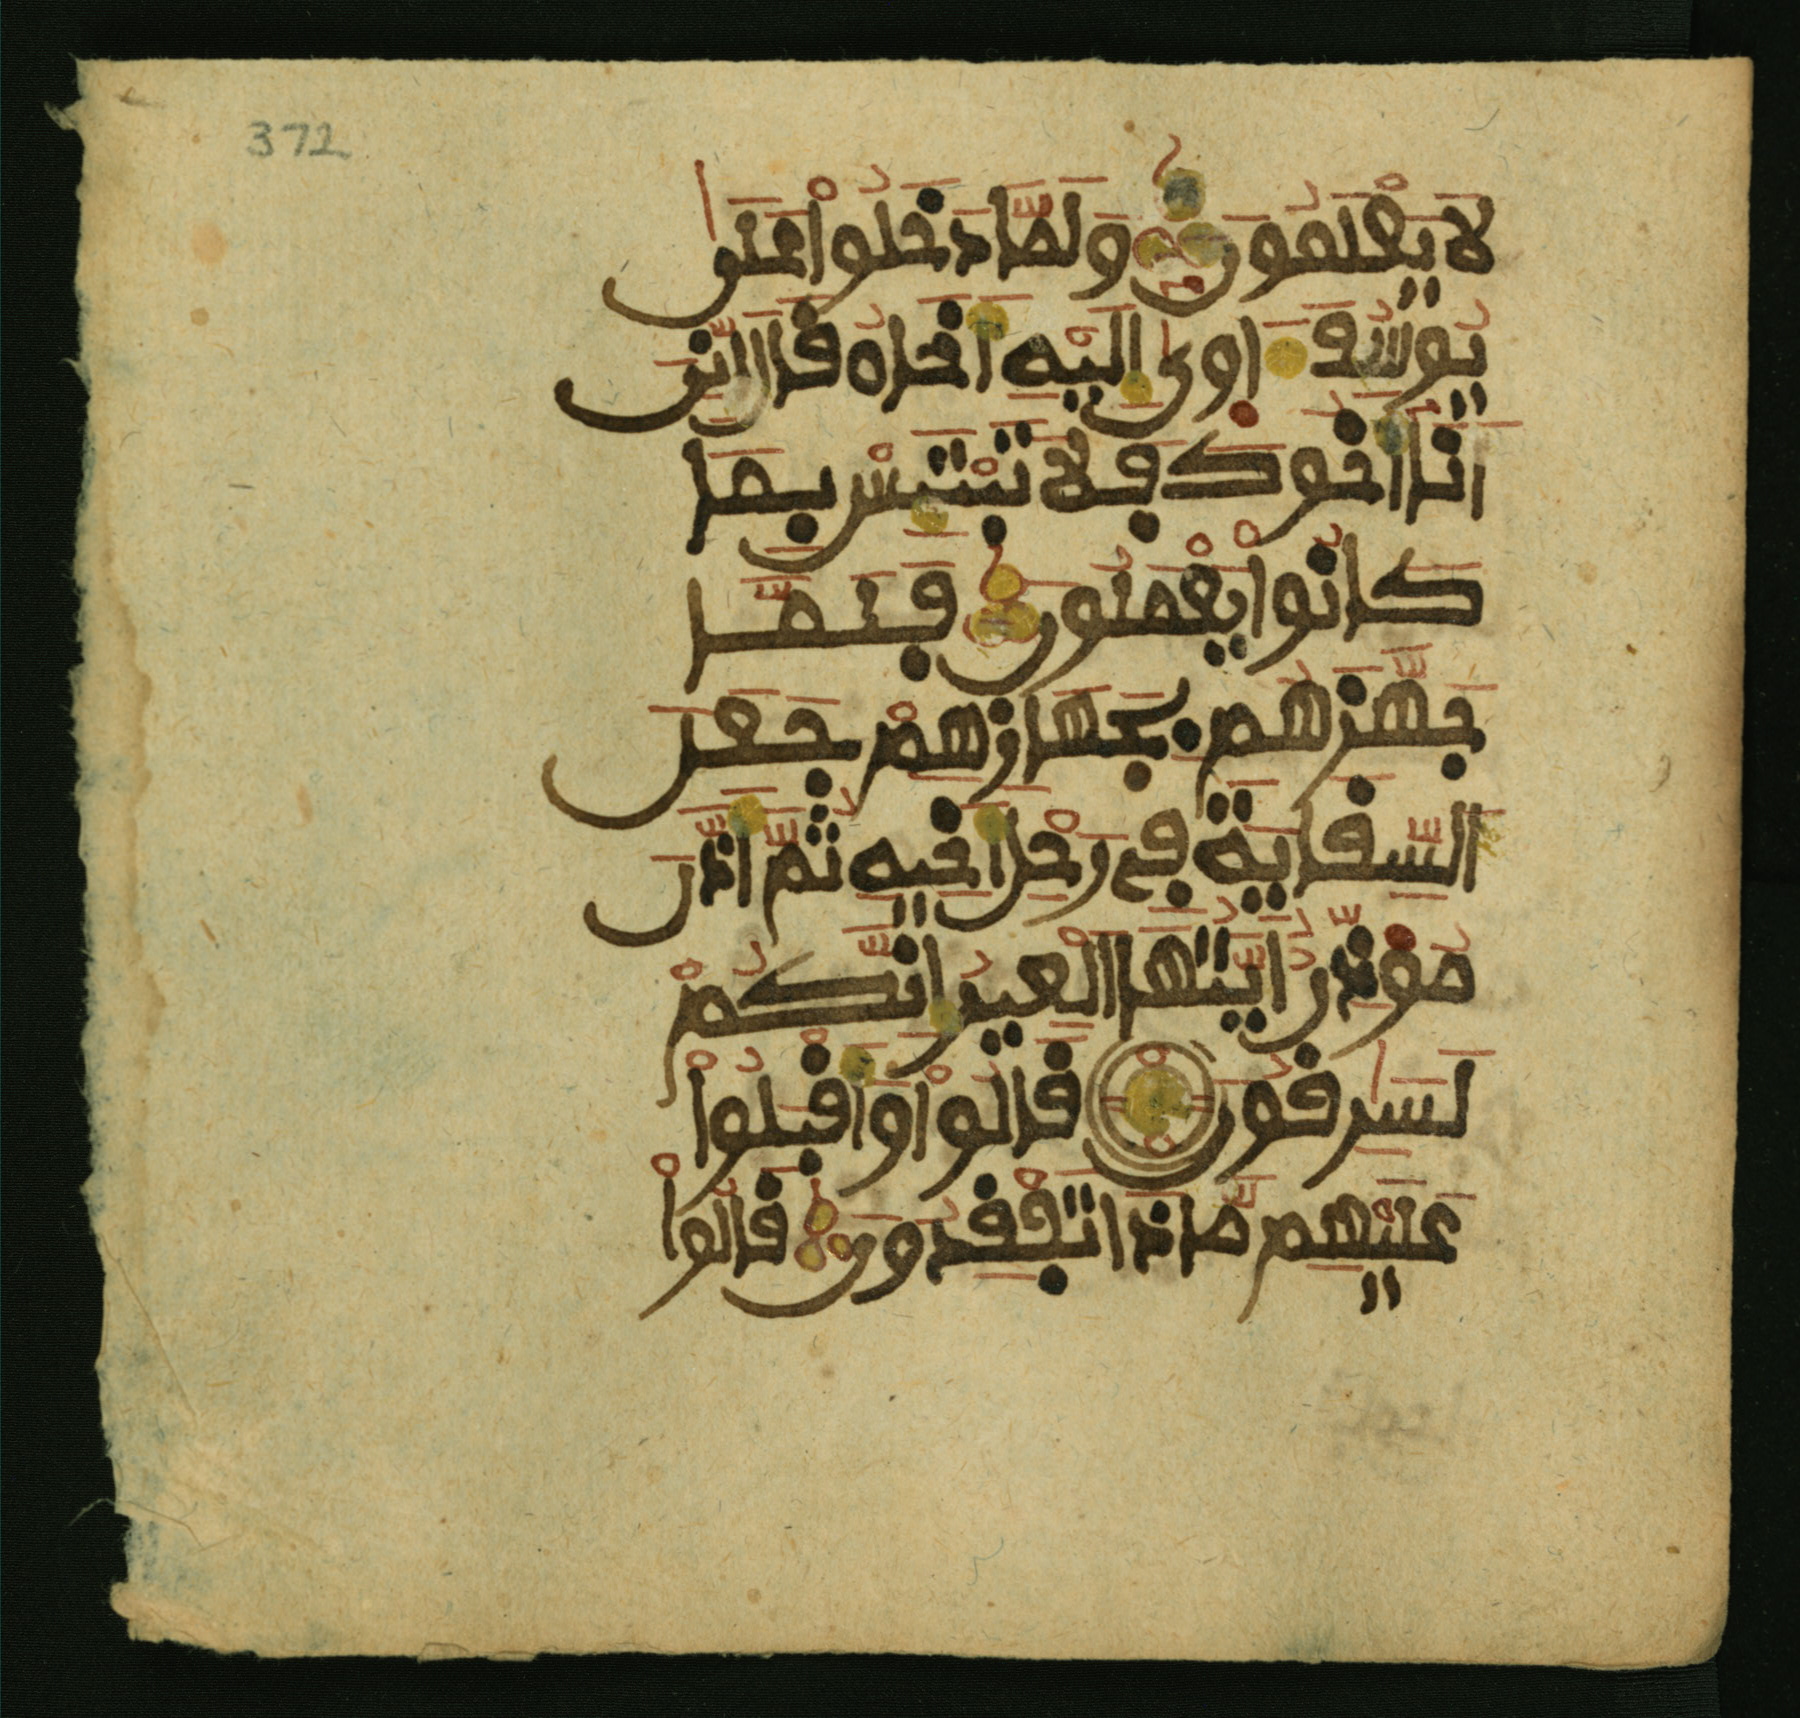 372
لَا يَعْلَمُونَ وَلَمَّا دَخَلُواْ عَلَىٰ
يُوسُفَ ءَاوَىٰ إِلَيْهِ أَخَاهُ فَالَ إِنِّے
أَنَآ أَخُوكَ فَلَا تَبْتَئِسْ بِمَا
كَانُواْ يَعْمَلُونَ فَلَمَّا
جَهَّزَهُم بِجَهَازِهِمْ جَعَلَ
السِّفَايَةَ فِے رَحْلِ أَخِيهِ ثُمَّ أَذَّنَ
مُوَذِّنٌ أَيَّتُهَا الْعِيرُ إِنَّكُمْ
لَسَٰرِفُونَ فَالُواْ وَأَفْبَلُواْ
عَلَيْهِم مَّاذَا تَفْفِدُونَ فَالُواْ